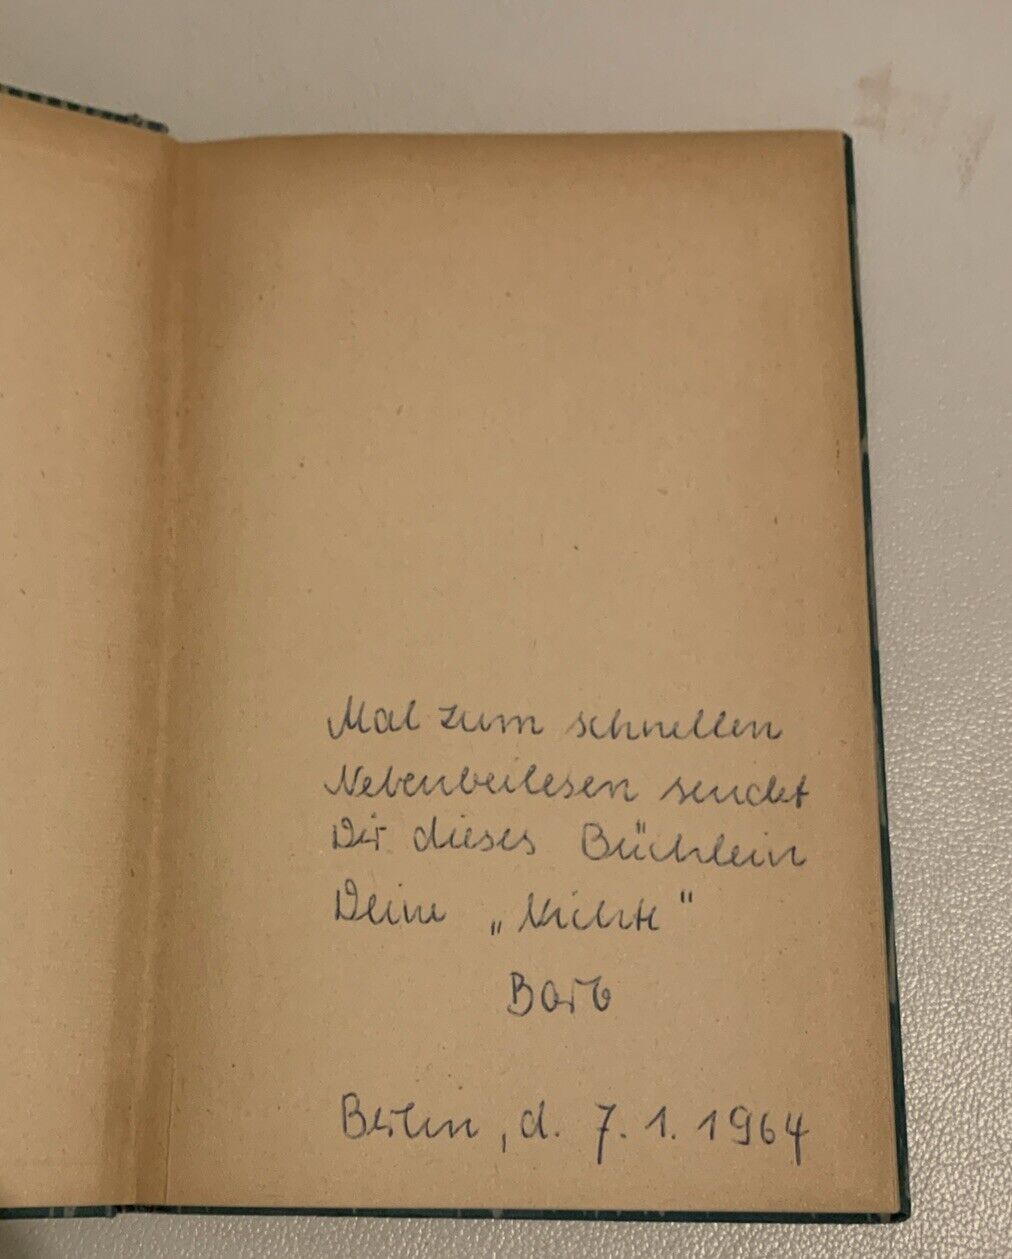 Mal zum schnellen
Nebenbeilesen sendet
Dir dieses Büchlein
Deine „Nichte"
Barb
Berlin, d. 7.1.1964